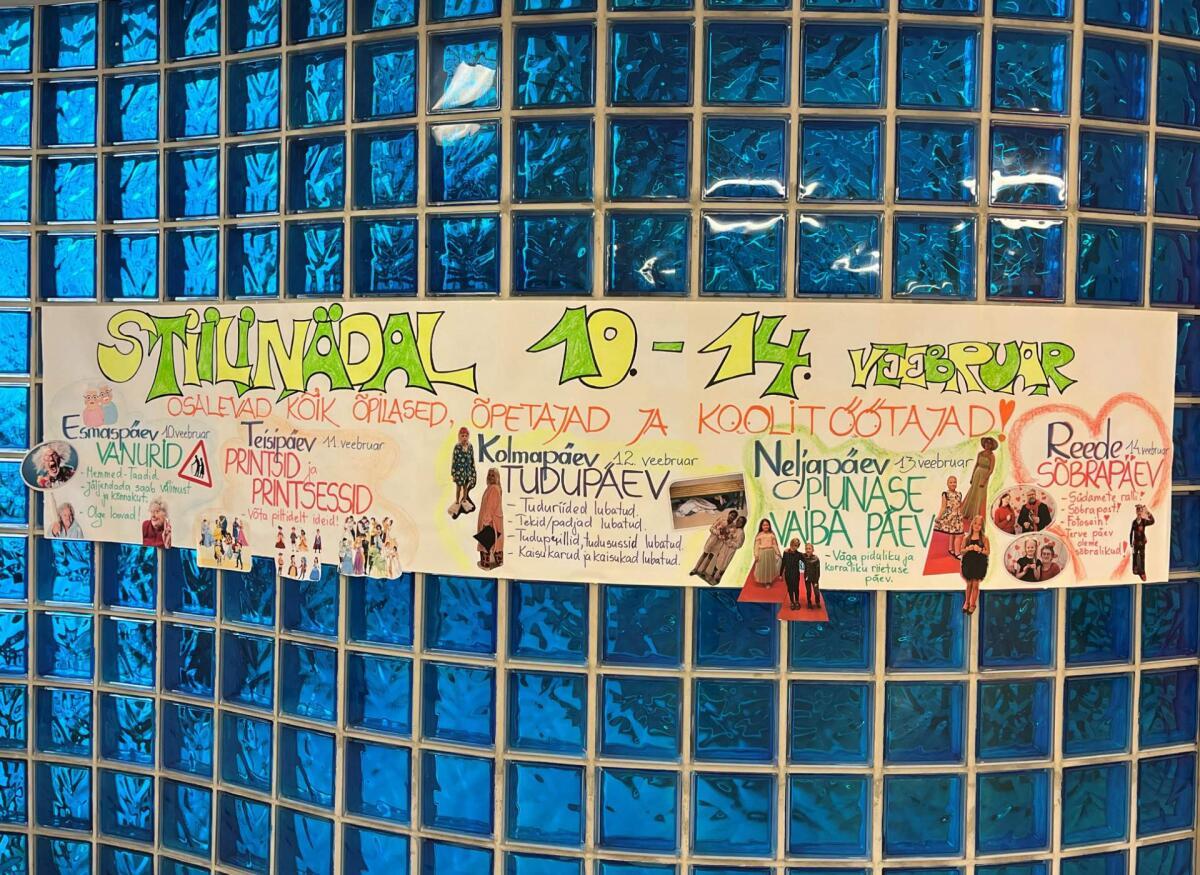 STIILINÄDAL 10. - 14. VEEBRUAR
OSALEVAD KÕIK ÕPILASED, ÕPETAJAD JA KOOLITÖÖTAJAD!
Esmaspäev 10.veebruar
VANURID
- Memmed-Taadid
- Jäljendada saab välimust
ja kõnnakut.
- Olge loovad!
Teisipäev 11.veebruar
PRINTSID ja
PRINTSESSID
- Võta piltidelt ideid!
Kolmapäev 12. veebruar
TUDUPÄEV
- Tuduriided lubatud.
- Tekid/padjad lubatud.
- Tuduprillid, tudusussid lubatud.
- Kaisukarud ja kaisukad lubatud.
Neljapäev 13 veebruar
PUNASE
VAIBA PÄEV
- Väga piduliku ja
korraliku riietuse
päev.
Reede 14.veebruar
SÕBRAPÄEV
- Südamete ralli!
- Sõbrapost!
- Fotosein!
- Terve päev
oleme
sõbralikud!